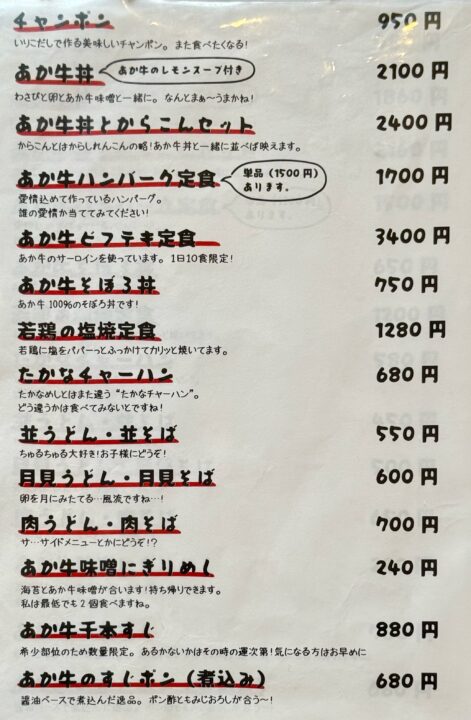 チャンポン 950円
いりこだしで作る美味しいチャンポン。また食べたくなる!
あか牛丼 あか牛のレモンスープ付き 2100円
わさびと卵とあか牛味噌と一緒に。なんとまぁ〜うまかね!
あか牛丼とからこんセット 2400円
からこんとはからしれんこんの略!あか牛丼と一緒に並べば映えます。
あか牛ハンバーグ定食 単品(1500円) 1700円
あります。
愛情込めて作っているハンバーグ。
誰の愛情か当ててみてください!
あか牛ビフテキ定食 3400円
あか牛のサーロインを使っています。1日10食限定!
あか牛そぼろ丼 750円
あか牛100%のそぼろ丼です!
若鶏の塩焼定食 1280円
若鶏に塩をパパーっとふっかけてカリッと焼いてます。
たかなチャーハン 680円
たかなめしとはまた違う“たかなチャーハン”。
どう違うかは食べてみないとですね!
並うどん・並そば 550円
ちゅるちゅる大好き!お子様にどうぞ!
月見うどん・月見そば 600円
卵を月にみたてる…風流ですね…!
肉うどん・肉そば 700円
サ…サイドメニューとかにどうぞ!?
あか牛味噌にぎりめし 240円
海苔とあか牛味噌が合います!持ち帰りできます。
私は最低でも2個食べますね。
あか牛千本すじ 880円
希少部位のため数量限定。あるかないかはその時の運次第!気になる方はお早めに
あか牛のすじポン(煮込み) 680円
醤油ベースで煮込んだ逸品。ポン酢ともみじおろしが合う〜!